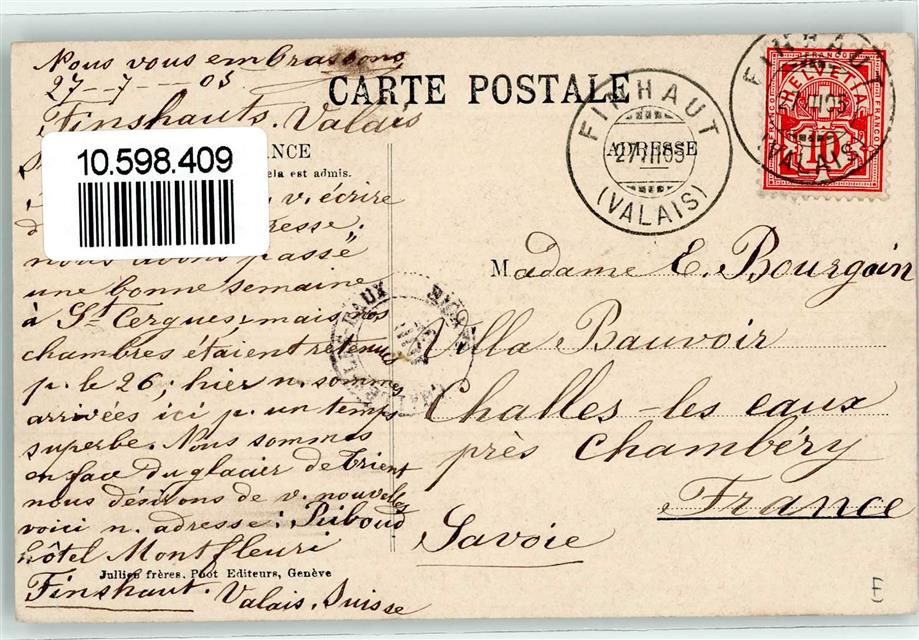 Nous vous embrassons
27-7-05
CARTE POSTALE
Finshauts. Valais
10.598.409
NCE
ela est admis.
ADRESSE
v. écrire
resse;
nous avons passé
une bonne semaine
à St Cergues; mais nos
chambres étaient retenues
p. le 26; hier n. sommes
arrivées ici p. un temps
superbe. Nous sommes
en face du glacier de Trient
nous désirons de v. nouvelles
voici n. adresse: Riboud
hôtel Montfleuri
Jullien frères. Phot Editeurs, Genève
Finshaut. Valais. Suisse
FINHAUT
27 VII 05
(VALAIS)
FRANCO
HELVETIA
10
FRANCO
FRANCO
FINHAUT
VII 05
(VALAIS)
Madame E. Bourgoin
Villa Bauvoir
Challes-les eaux
près Chambéry
France
Savoie
E